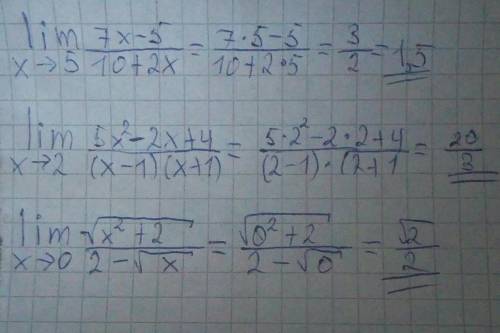 lim x→5 (7x-5)/(10+2x) = (7·5-5)/(10+2·5) = 3/2 = 1,5
lim x→2 (5x²-2x+4)/((x-1)(x+1)) = (5·2²-2·2+4)/((2-1)·(2+1) = 20/3
lim x→0 √(x²+2)/(2-√x) = √(0²+2)/(2-√0) = √2/2